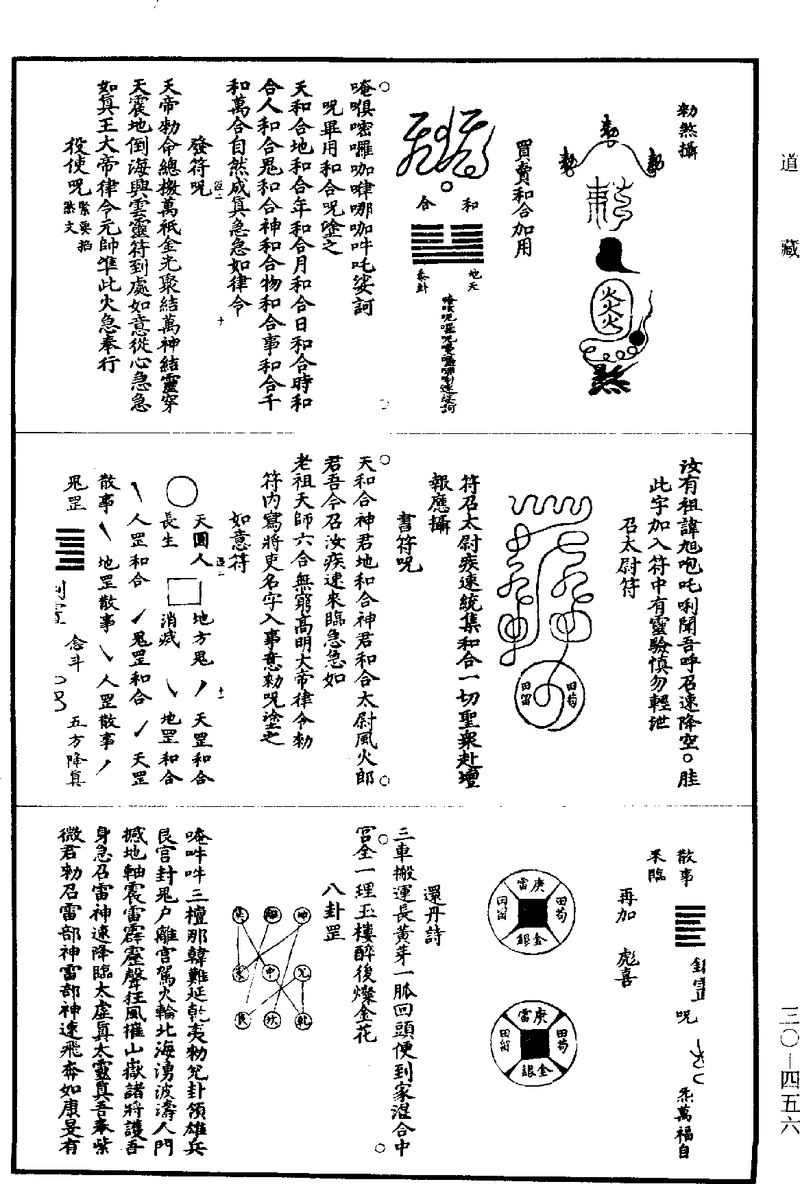 道藏
三〇—四五六
勑煞攝
火火火
煞
買賣和合加用
和合
地天
泰卦
唵
呪畢用和合呪塗之
天和合地和合年和合月和合日和合時和
合人和合鬼和合神和合物和合事和合千
和萬合自然成真急急如律令
發符呪
天帝勑命總檄萬祇金光聚結萬神結靈穿
天震地倒海興雲靈符到處如意從心急急
如真王大帝律令元帥准此火急奉行
役使呪
緊要指
汝有祖諱旭咆吒唎聞吾呼召速降空○胜
此字加入符中有靈驗慎勿輕泄
召太尉符
田苟
田留
符召太尉疾速統集和合一切聖衆赴壇
報應攝
書符呪
天和合神君地和合神君和合太尉風火郎
君吾今召汝疾速來臨急急如
老祖天師六合無窮高明大帝律令勑
符內寫將吏名字入事意勑呪塗之
如意符
天圓人 地方鬼 天罡和合
長生 消滅 地罡和合
人罡和合 鬼罡和合 天罡
散事 地罡散事 人罡散事
鬼罡 念斗 五方降真
散事 呪 炁萬福自
來臨
再加 彪喜
雷庚 田苟 銀金 田留
雷庚 田苟 銀金 田留
還丹詩
三車搬運長黃芽一脈回頭便到家混合中
宮全一理玉樓醉後燦金花
八卦罡
坤 離 巽
兌 中 震
乾 坎 艮
唵吽吽三檀那韓難延乾夷勑兌卦領雄兵
艮宮封鬼户離宮駕火輪北海湧波濤人門
撼地軸震雷霹靂聲狂風摧山嶽諸將護吾
身急召雷神速降臨太虛真太靈真吾奉紫
微君勑召雷部神雷部神速飛奔如康旻有